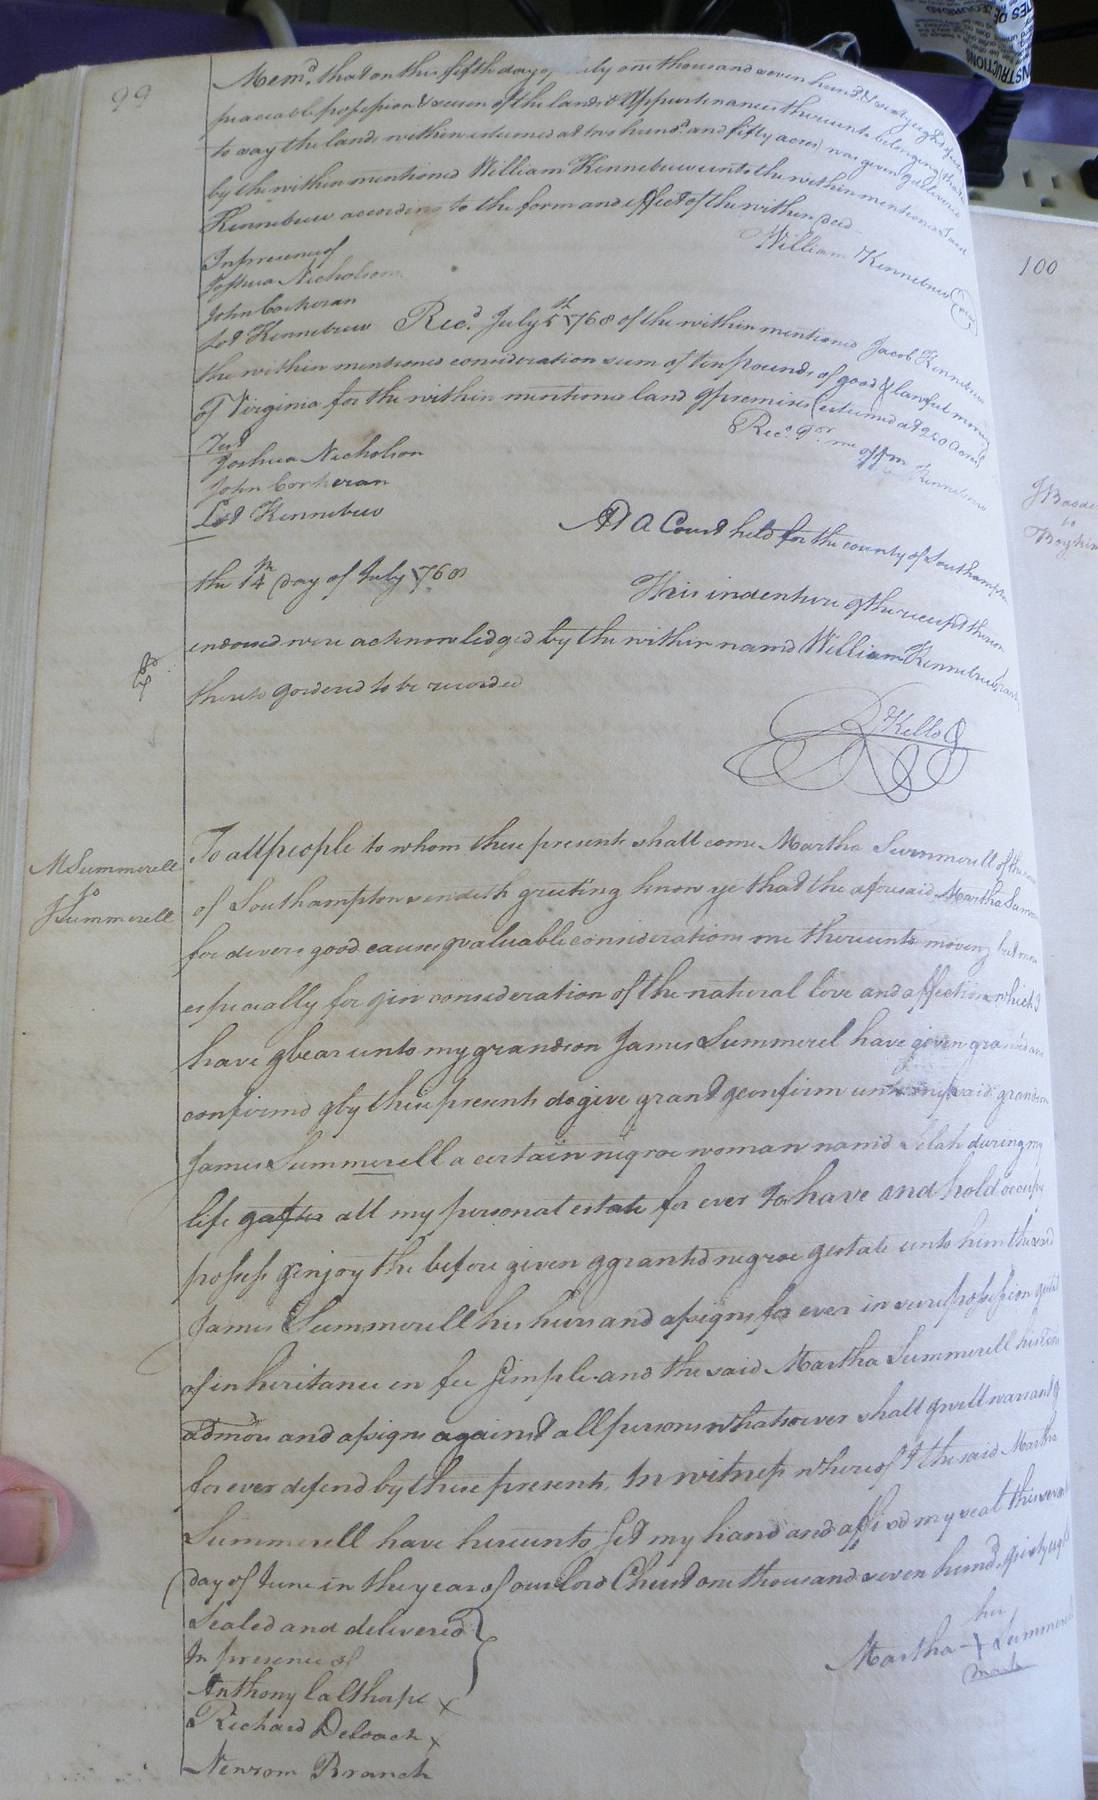 99
Memd. that on this fifth day of one thousand seven hund. & sixty eight
peaceable possession & seisen of the lands & Appurtenances thereunto belonging
to say the lands within esteemed at two hund.d and fifty acres was given & delivered
by the within mentioned William Kennebrew unto the within mentioned Jacob
Kennebrew according to the form and effect of the within deed
William Kennebrew
In presence of
Joshua Nicholson
John Corkeran
Lod Kennebrew Recd. July 5th 1768 of the within mentioned Jacob Kennebrew
the within mentioned consideration sum of ten pounds of good & lawful money
of Virginia for the within mentioned land & premises esteemed at 250 acres
Recd. pr. me Kennebrew
Test
Joshua Nicholson
John Corkeran
Lod Kennebrew
At a Court held for the county of Southampton
the 14th day of July 1768
This indenture & the receipt thereon
endorsed were acknowledged by the within named William Kennebrew
thereto & ordered to be recorded
Kello
M Summerell
to
J Summerell
To all people to whom these presents shall come Martha Summerell of the
of Southampton sendeth greeting know ye that the aforesaid Martha Summ
for divers good causes & valuable considerations me thereunto moving but more
especially for & in consideration of the natural love and affection which I
have & bear unto my grandson James Summerel have given granted and
confirmed & by these presents do give grant & confirm unto my said grandson
James Summerell a certain negroe woman named Selah during my
life & after all my personal estate for ever To have and hold occupy
possess & enjoy the before given & granted negroe & estate unto him the said
James Summerell his heirs and assigns for ever in sure possession
of inheritance in fee simple and the said Martha Summerell her
admors and assigns against all persons whatsoever shall & will warrant &
for ever defend by these presents. In witness whereof I the said Martha
Summerell have hereunto set my hand and affixed my seal this
day of June in the year of our lord Christ one thousand seven hund. & sixty eight
Sealed and delivered
In presence of
her
Martha + Summerell
mark
Anthony Calthorpe x
Richard Deloach x
Newsom Branch
100
to